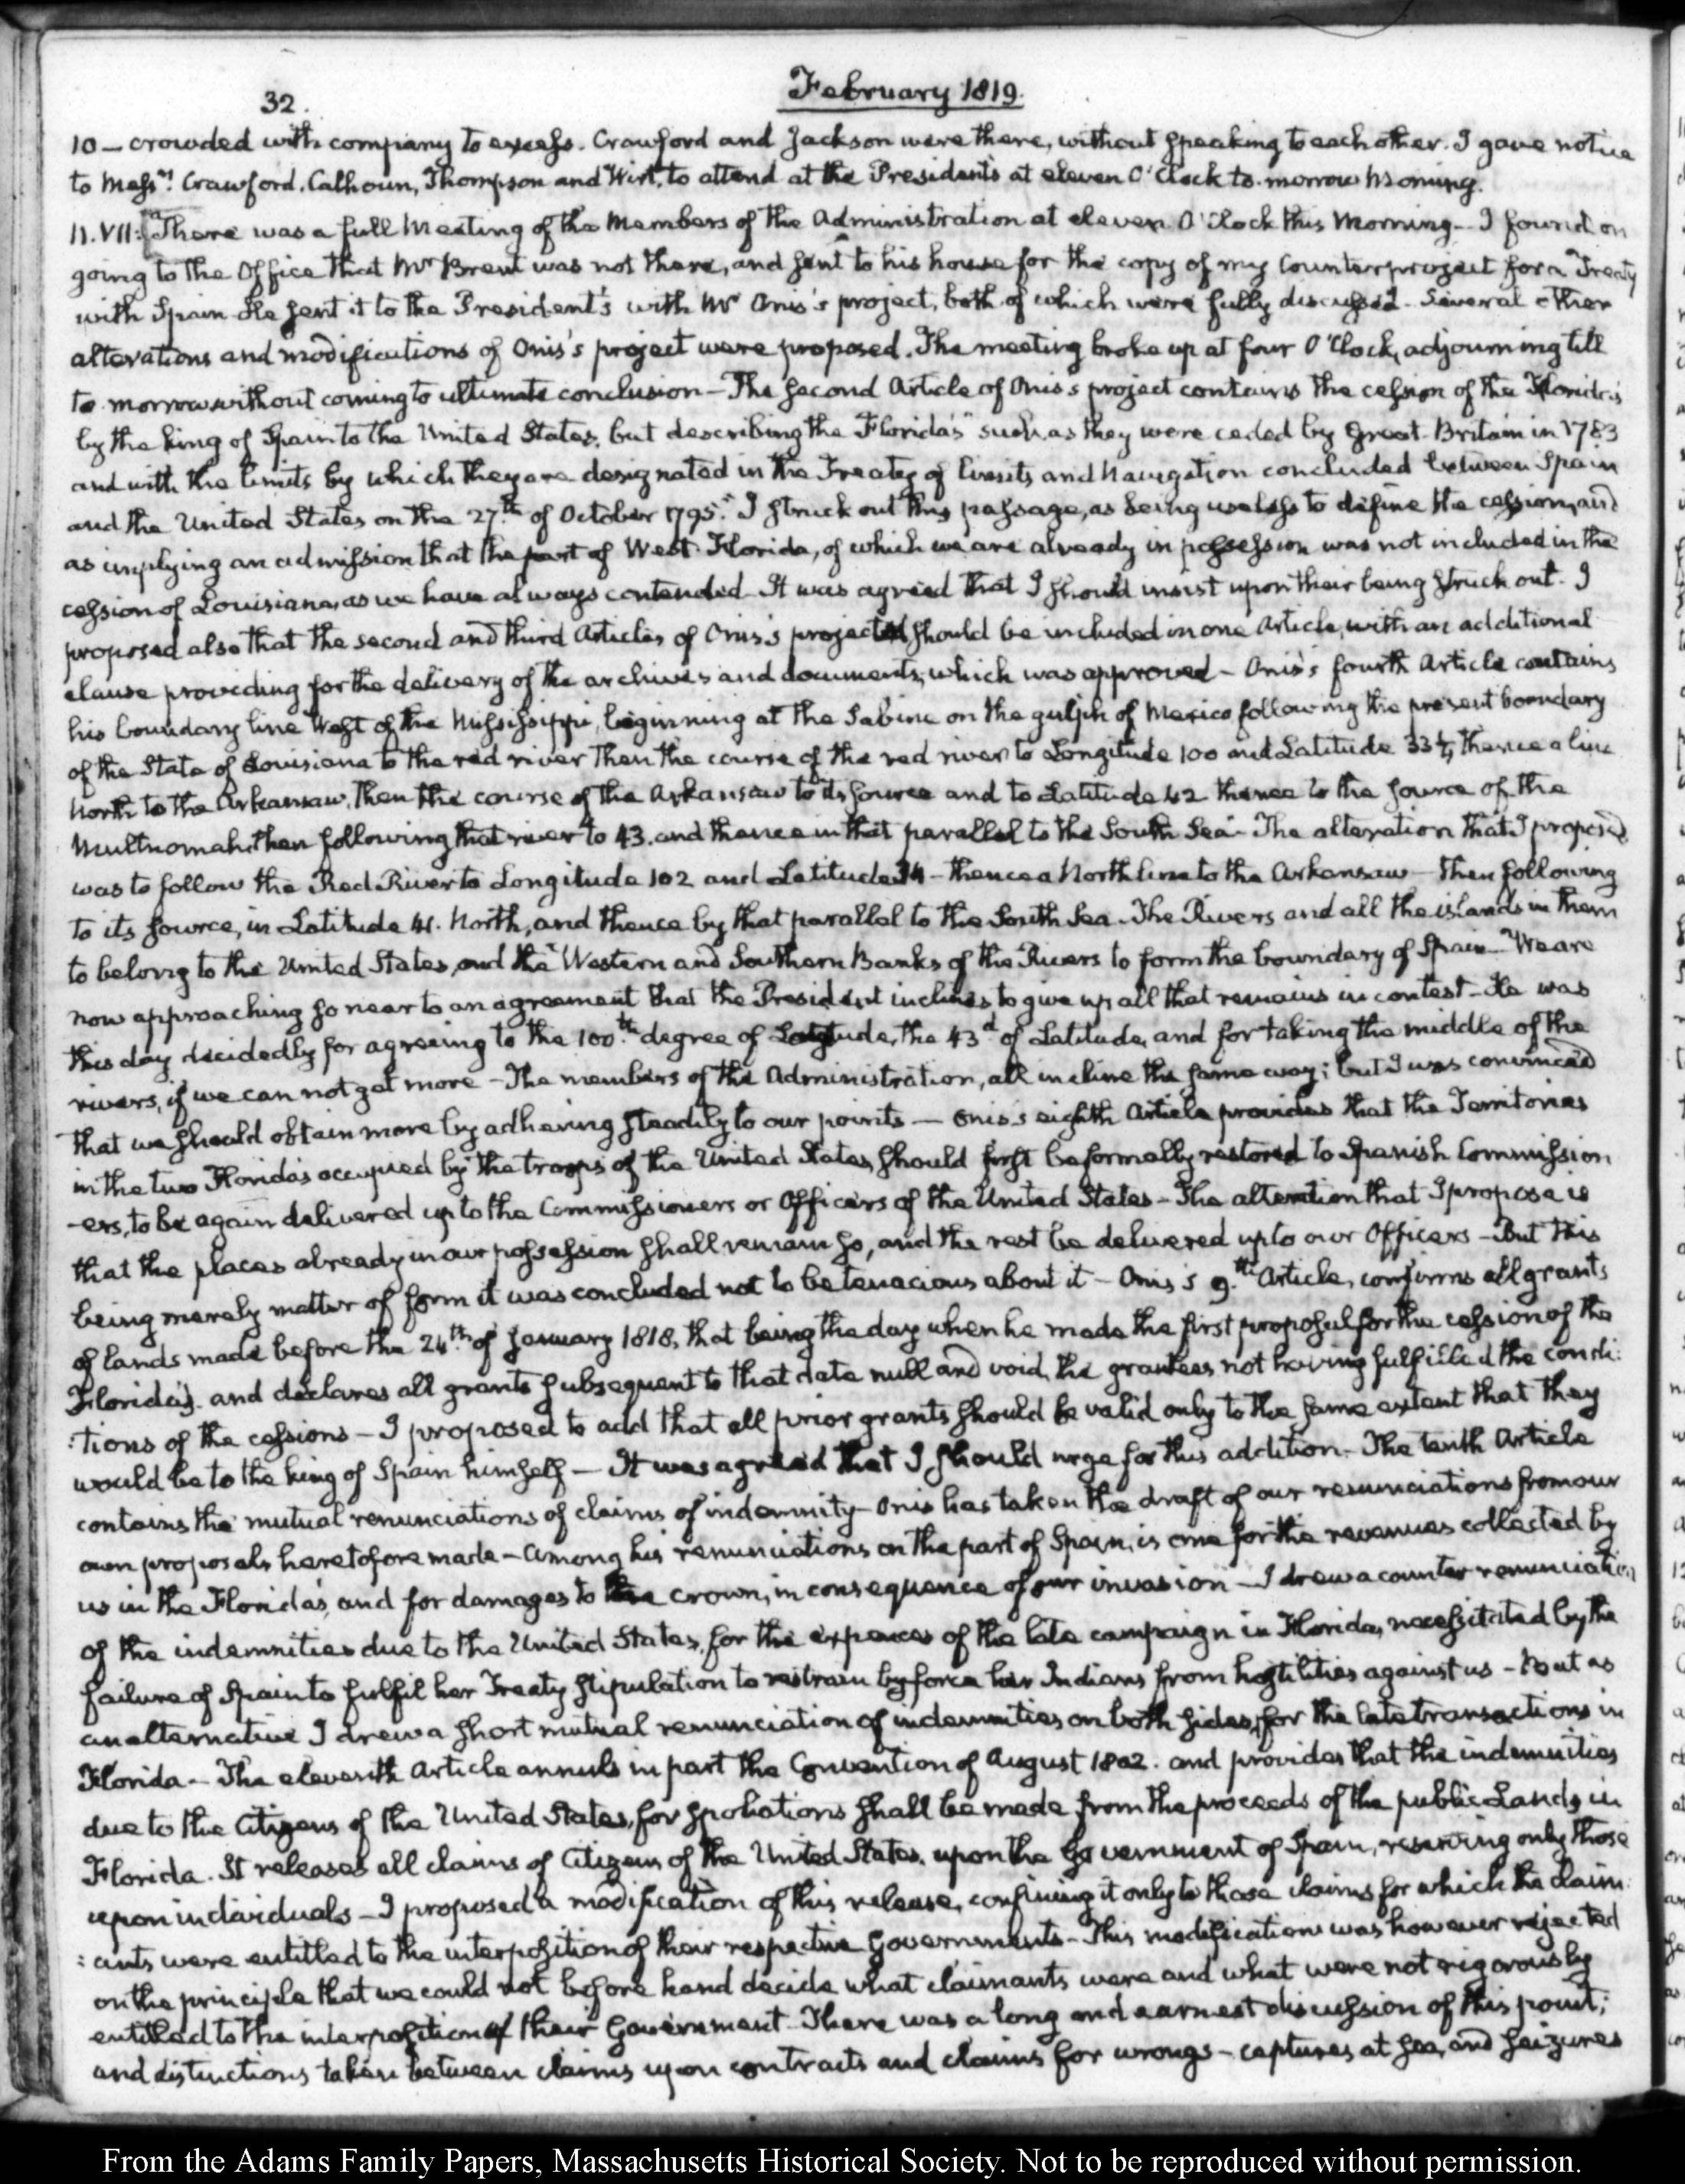 32.
February 1819.
10 – crowded with company to excess. Crawford and Jackson were there, without speaking to each other. I gave notice
to Messrs. Crawford, Calhoun, Thompson and Wirt, to attend at the President's at eleven O'Clock to-morrow Morning.
11. VII: There was a full Meeting of the Members of the Administration at eleven O'Clock this Morning – I found on
going to the Office that Mr Brent was not there, and sent to his house for the copy of my Counterproject for a Treaty
with Spain – He sent it to the President's with Mr Onis's project, both of which were fully discussed. Several other
alterations and modifications of Onis's project were proposed. The meeting broke up at four O'Clock, adjourning till
to-morrow without coming to ultimate conclusion – The second Article of Onis's project contains the cession of the Florida's
by the king of Spain to the United States, but describing the Florida's "such as they were ceded by Great-Britain in 1783
and with the limits by which they are designated in the Treaty of limits and Navigation concluded between Spain
and the United States on the 27th of October 1795." I struck out this passage, as being useless to define the cession, and
as implying an admission that the part of West-Florida, of which we are already in possession was not included in the
cession of Louisiana, as we have always contended. It was agreed that I should insist upon their being struck out. I
proposed also that the second and third Articles of Onis's project should be included in one Article, with an additional
clause providing for the delivery of the archives and documents, which was approved – Onis's fourth Article contains
his boundary line West of the Mississippi, beginning at the Sabine on the gulph of Mexico following the present boundary
of the State of Louisiana to the red river then the course of the red river to Longitude 100 and Latitude 33½, thence a line
North to the Arkansaw, then the course of the Arkansaw to its source and to Latitude 42 thence to the source of the
Multnomah, then following that river to 43. and thence in that parallel to the South Sea – The alteration that I proposed
was to follow the Red River to Longitude 102 and Latitude 34 – thence a North line to the Arkansaw – then following
to its source, in Latitude 41. North, and thence by that parallel to the South Sea – The Rivers and all the islands in them
to belong to the United States, and the Western and Southern Banks of the Rivers to form the boundary of Spain – We are
now approaching so near to an agreement that the President inclines to give up all that remains in contest – He was
this day decidedly for agreeing to the 100th degree of Longitude, the 43d of Latitude, and for taking the middle of the
rivers, if we can not get more – The members of the Administration, all incline the same way; but I was convinced
that we should obtain more by adhering steadily to our points — Onis's eighth Article provides that the Territories
in the two Florida's occupied by the troops of the United States, should first be formally restored to Spanish Commission
-ers, to be again delivered up to the Commissioners or Officers of the United States – The alteration that I propose is
that the places already in our possession shall remain so, and the rest be delivered up to our Officers – But this
being merely matter of form it was concluded not to be tenacious about it – Onis's 9.th Article, confirms all grants
of lands made before the 24.th of January 1818, that being the day when he made the first proposal for the cession of the
Florida's. and declares all grants subsequent to that date null and void, the grantees not having fulfilled the condi:
:tions of the cessions – I proposed to add that all prior grants should be valid only to the same extent that they
would be to the king of Spain himself — It was agreed that I should urge for this addition – The tenth Article
contains the mutual renunciations of claims of indemnity – Onis has taken the draft of our renunciations from our
own proposals heretofore made – Among his renunciations on the part of Spain, is one for the revenues collected by
us in the Florida's, and for damages to the crown, in consequence of our invasion – I drew a counter renunciation
of the indemnities due to the United States, for the expences of the late campaign in Florida, necessitated by the
failure of Spain to fulfil her Treaty stipulation to restrain by force her Indians from hostilities against us – But as
an alternative I drew a short mutual renunciation of indemnities on both sides, for the late transactions in
Florida – The eleventh Article annuls in part the Convention of August 1802. and provides that the indemnities
due to the Citizens of the United States, for spoliations shall be made from the proceeds of the public Lands in
Florida. It releases all claims of Citizens of the United States, upon the Government of Spain, reserving only those
upon individuals – I proposed a modification of this release, confining it only to those claims for which the claim:
:ants were entitled to the interposition of their respective Governments – This modification was however rejected
on the principle that we could not before hand decide what claimants were and what were not rigorously
entitled to the interposition of their Government – There was a long and earnest discussion of this point;
and distinctions taken between claims upon contracts and claims for wrongs – captures at sea, and seizures
From the Adams Family Papers, Massachusetts Historical Society. Not to be reproduced without permission.